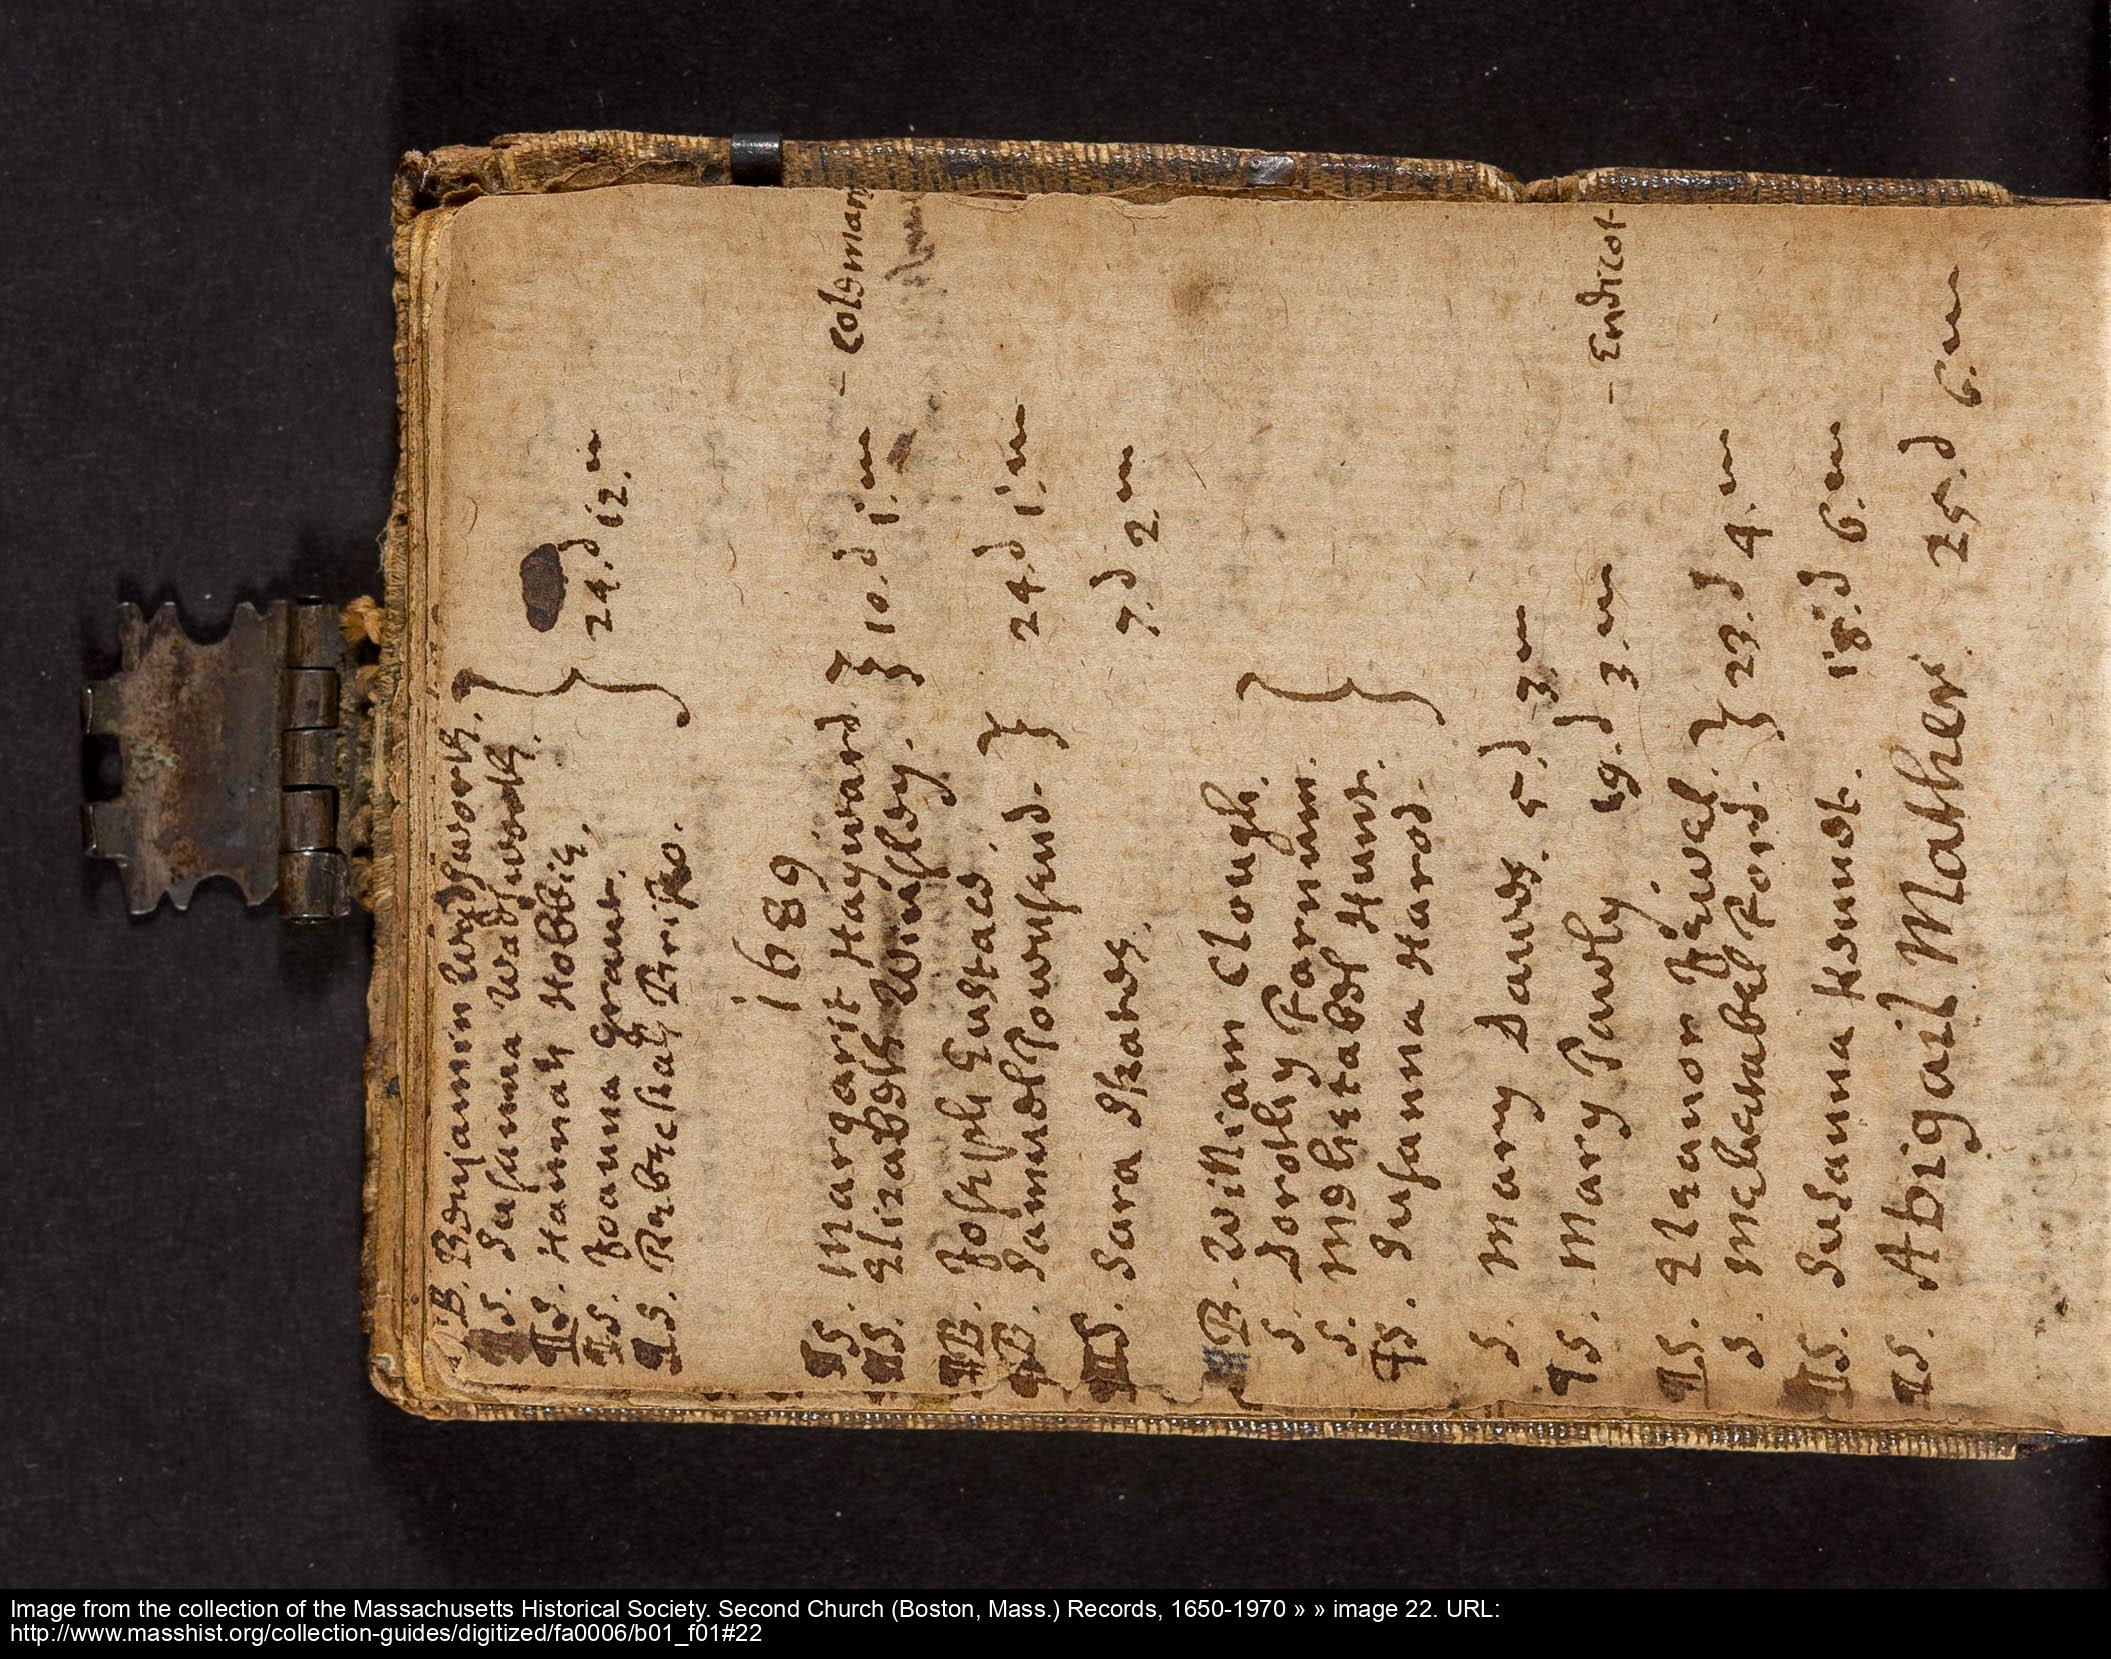 B. Benjamin Wadsworth.
S. Susanna Wadsworth.
S. Hannah Hobbie,
S. Joanna Grant.
S. Rebeckah
24.d 12.m
1689
S. Margarit Hayward } 10.d 1.m - Coleman
S. Elizabeth Winsley.
B. Joseph Eustace,
B. Samuel Townsend. } 24.d 1.m
S. Sara Skate. 7.d 2 m
B. William Clough.
S. Dorothy Farnum.
S. Mehetabel Hunt.
S. Susanna Harod.
S. Mary Dawes. 5.d 3 m
S. Mary Pawly 19.d 3.m - Endicot
S. Eleanor Jewel.
S. Mehetabel Ford. } 23.d 4.m
S. Susanna 18.d 6.m
S. Abigail Mather. 25.d 6.m
Image from the collection of the Massachusetts Historical Society. Second Church (Boston, Mass.) Records, 1650-1970 » » image 22. URL:
http://www.masshist.org/collection-guides/digitized/fa0006/b01_f01#22